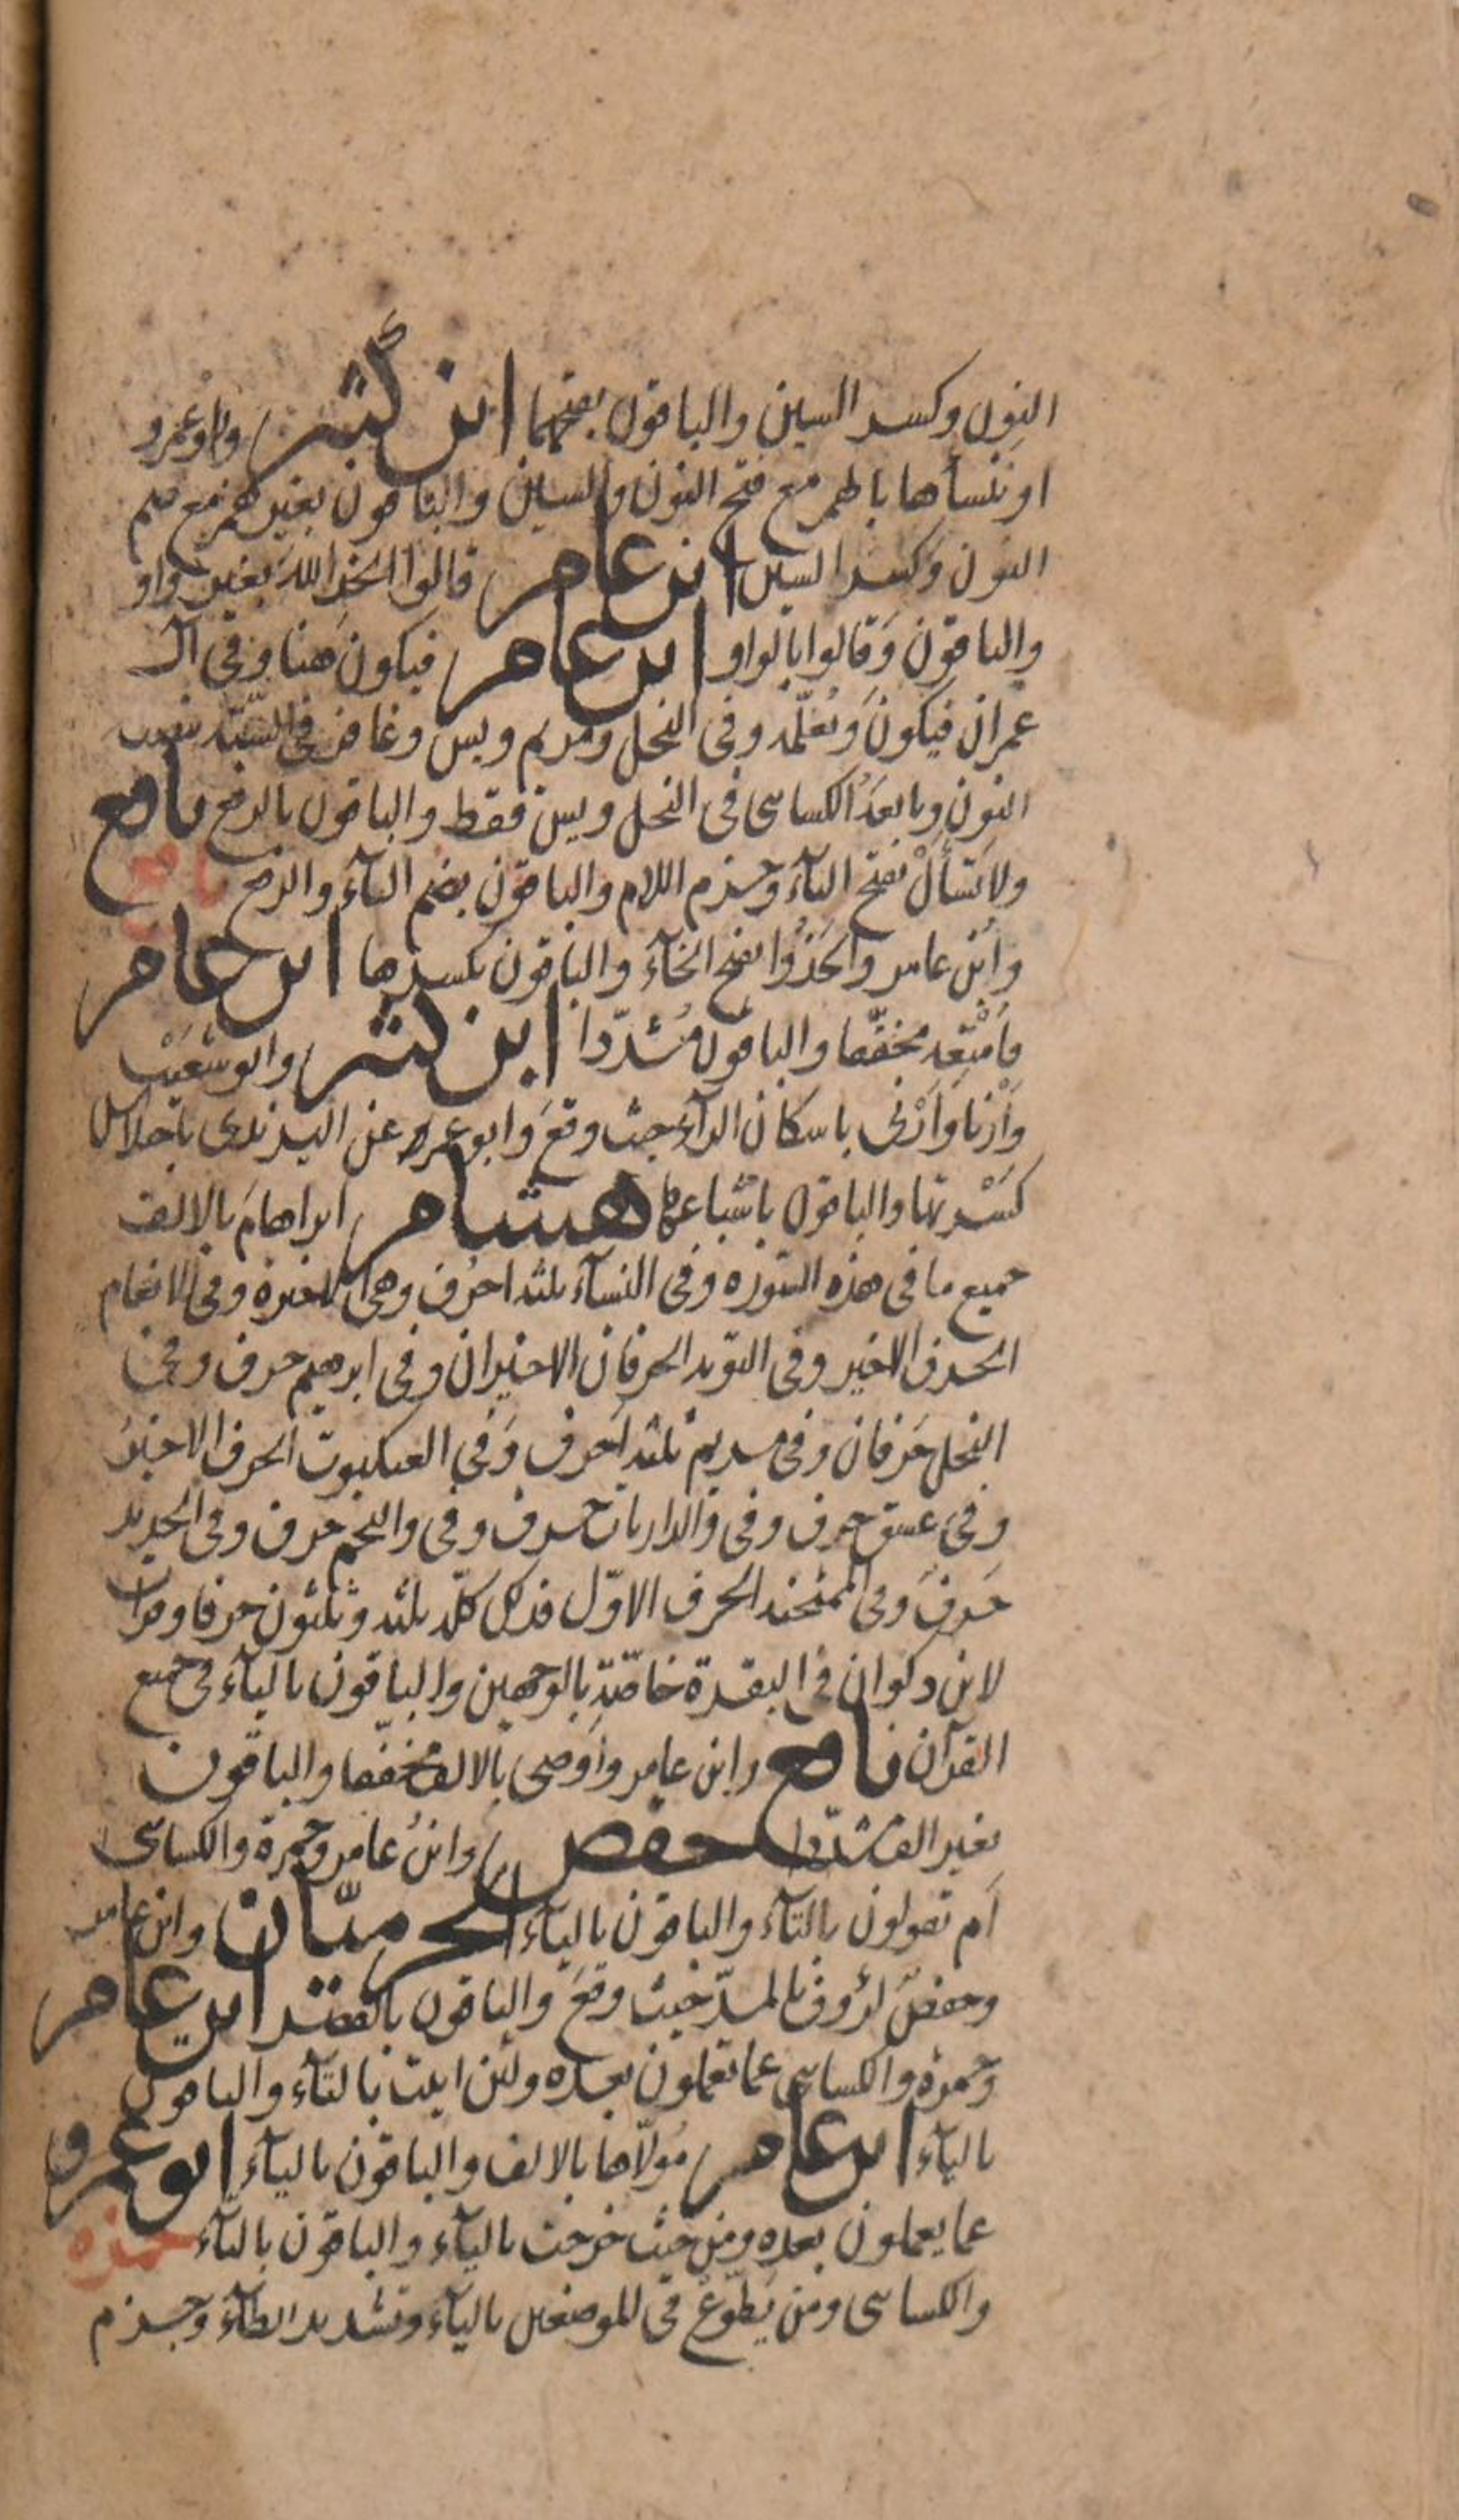 النون وكسر السين والباقون بفتحهما ابن كثير وابو عمرو
او ننسأها بالهمز مع فتح النون والسين والباقون بغير همز مع ضم
النون وكسر السين ابن عامر قالوا اتخذ الله بغير واو
والباقون وَقالوا بالواو ابن عامر فيكونَ هنا وفى آل
عمران فيكونَ وَنُعلّمه وفى النحل ومريم ويس وغافر فى السّتة بنصب
النون وتابعَهُ الكسائى فى النحل ويس فقط والباقون بالرفع نافع
ولا تَسْألْ بفتح التآء وجزم اللام والباقون بضم التآء والرفع نافع
وابْن عامر واتخَذُوا بفتح الخآء والباقون بكسرها ابن عامر
فأمْتِعُه مخفّفا والباقون مُشدّدا ابن كثير وابو شعَيْب
وَأَرْنا وأَرْنى باسكان الرآء حيث وقعَ وابو عمرو عن اليزيدى باختلاس
كَسْرتها والباقون باشباعها هشام ابراهامَ بالالف
جميع ما فى هذه السّورة وفى النسآء ثلثة احرُف وهى الاخيرة وفى الانعام
الحرف الاخير وفى التوبة الحرفان الاخيران وفى ابرهيم حرف وفى
النحل حَرفان وفى مريم ثلثة اَحرف وَفى العنكبوت الحرف الاخيرُ
وفى عسق حرف وفى والذاريات حرف وفى والنجم حرف وفى الحديد
حَرفٌ وفى الممتحنة الحرف الاوّل فذلك كلّه ثلثة وثلثون حرفا وقرأت
لابن ذكوان فى البقرة خاصّة بالوجهين والباقون باليآء فى جميع
القرآن نافع وابن عامر وأوصى بالالف مخففا والباقون
بغير الف مشدّدا حفص وابنُ عامر وحمزة والكسائى
اَم تقولون بالتآء والباقون باليآء الحرميّان وابن عامر
وحفصٌ لرؤوف بالمدّ حيث وقعَ والباقون بالقصر ابن عامر
وحمزة والكسائى عما تعملون بعده ولئن اتيت بالتآء والباقون
باليآء ابن عامر مُولّاها بالالف والباقون باليآء ابو عمرو
عما يعملون بعده ومن حيث خرجت باليآء والباقون بالتآء حمزه
والكسائى ومن يَطّوّعْ فى الموضعين باليآء وتشديد الطآء وجزم